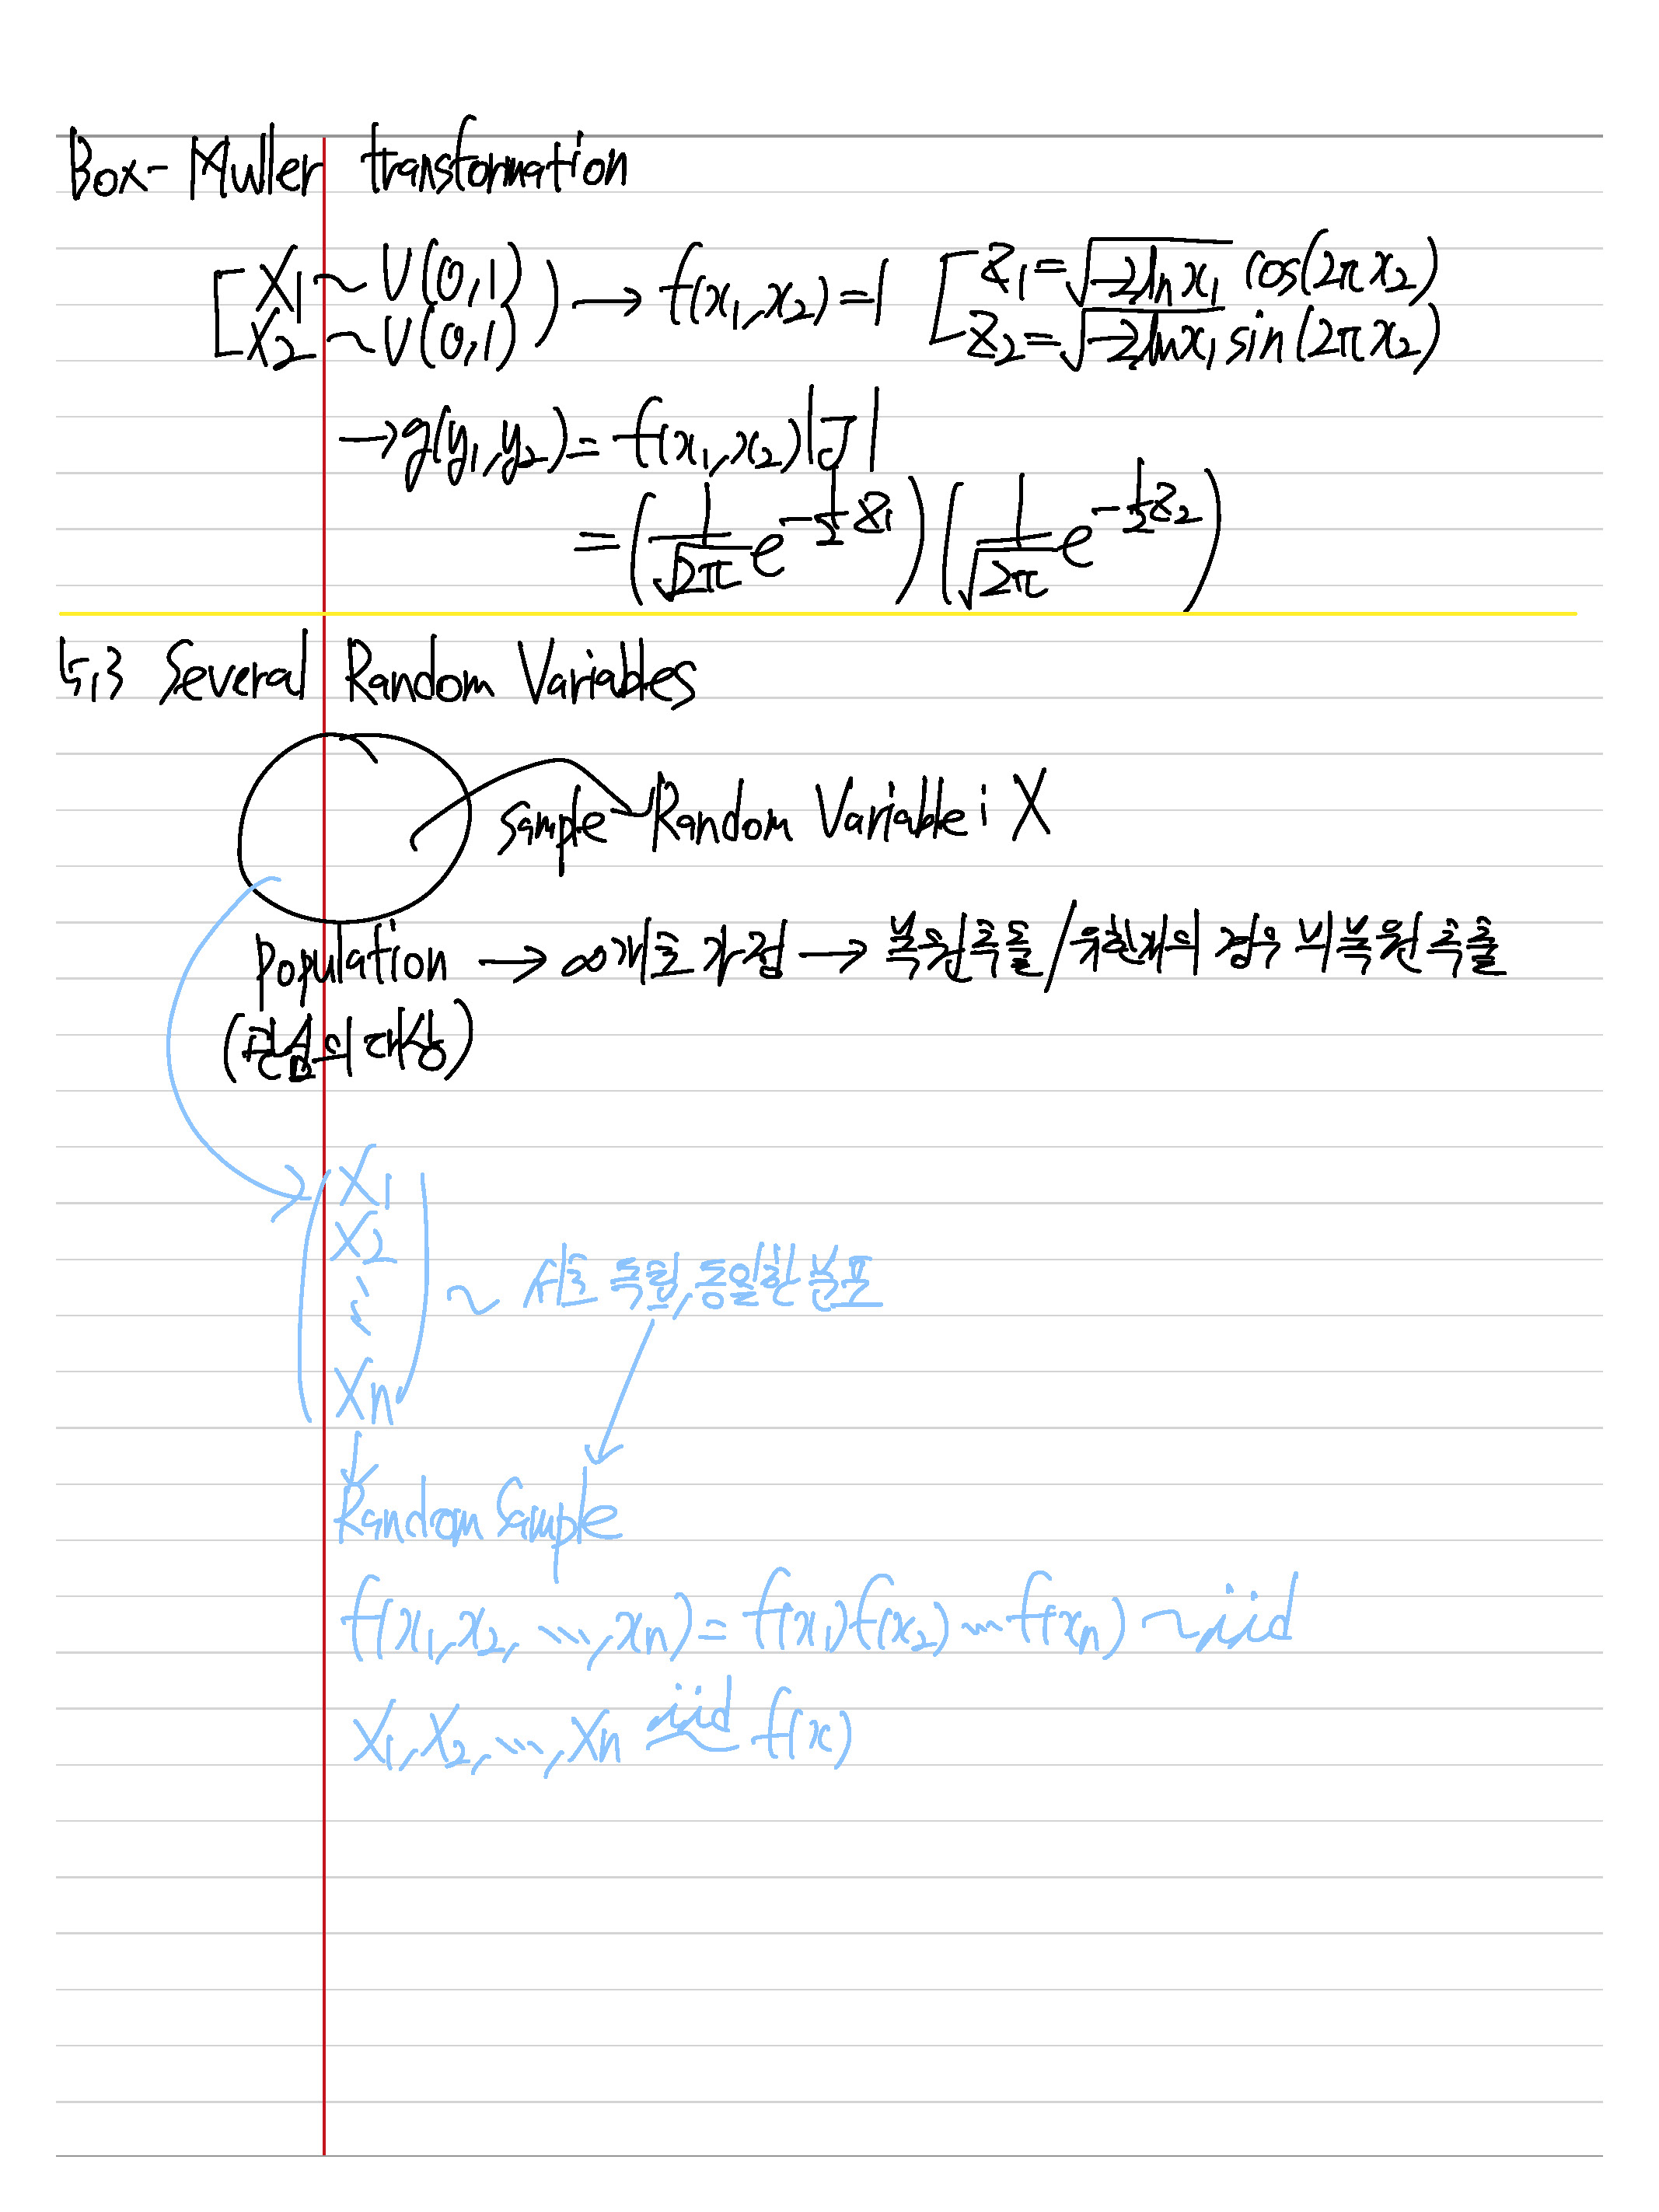 Box-Muller transformation
[X₁ ~ U(0,1) → f(x₁,x₂)=1 [Z₁=√(-2ln x₁) cos(2πx₂)
X₂ ~ U(0,1)) Z₂=√(-2lnx₁) sin(2πx₂)
→ g(y₁,y₂)= f(x₁,x₂)|J|
=(1/√2π e^(-½Z₁))(1/√2π e^(-½Z₂))
5.3 Several Random Variables
sample Random Variable : X
Population → ∞개로 가정 → 복원추출/유한개의 경우 비복원추출
(관심의 대상)
X₁
X₂
⋮ ~ 서로 독립, 동일한 분포
Xn
Random Sample
f(x₁,x₂,…,xn)=f(x₁)f(x₂)…f(xn) ~iid
X₁,X₂,…,Xn iid~ f(x)